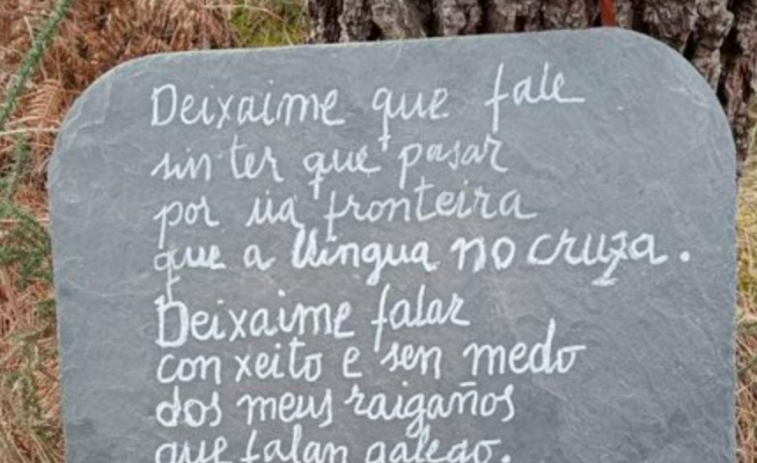 Deixaime que fale
sin ter que pasar
por úa fronteira
que a llingua no cruza.
Deixaime falar
con xeito e sen medo
dos meus raigaños
que falan galego.